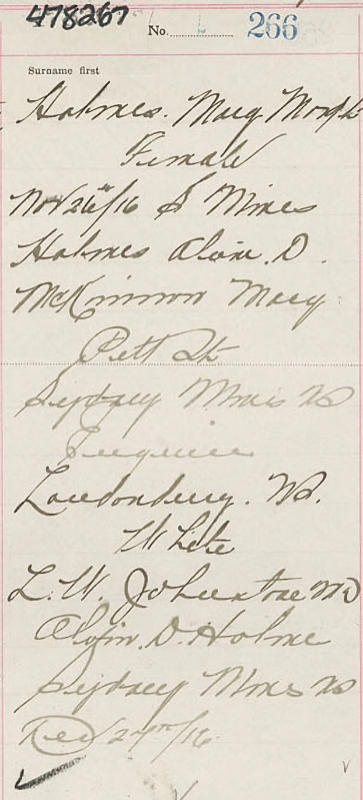 478267
No. 266
Surname first
Holmes. Mary
Female
Nov 26th/16 S Mines
Holmes Alvin. D.
McKinnon Mary
Pitt St
Sydney Mines NS
Londonderry. NS.
White
L. W. Johnstone MD
Alvin. D. Holme
Sydney Mines NS
Dec 27th/16